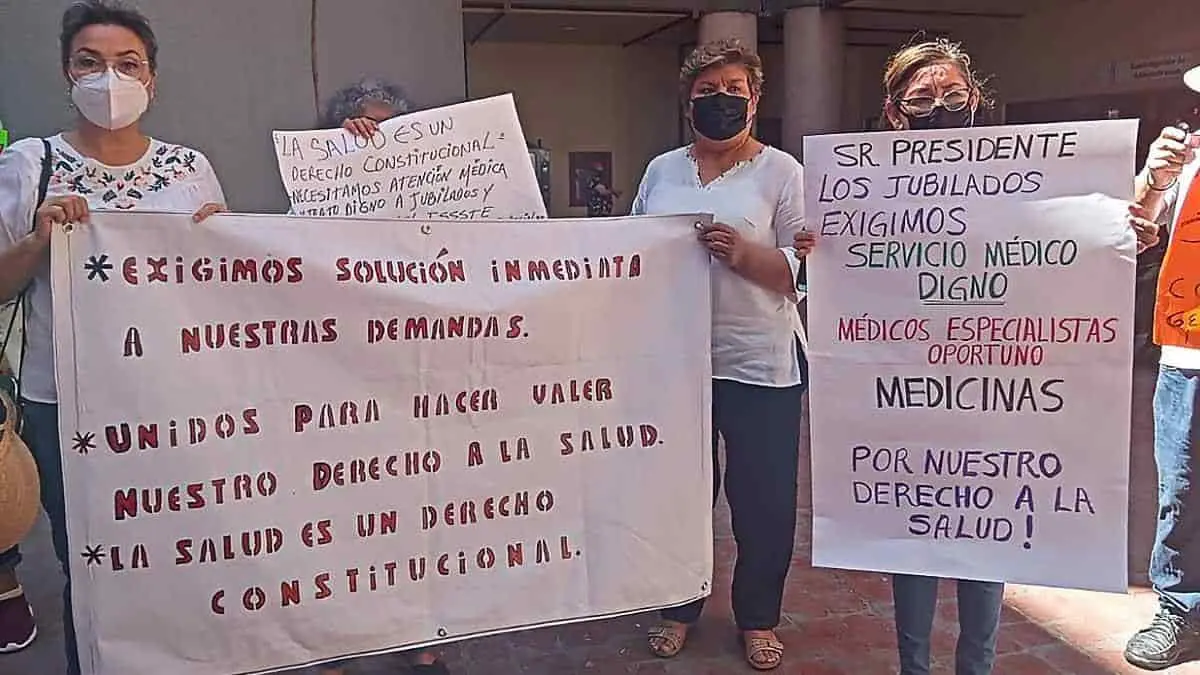 "LA SALUD ES UN
DERECHO CONSTITUCIONAL"
NECESITAMOS ATENCIÓN MÉDICA
TRATO DIGNO A JUBILADOS Y
ISSSTE
*EXIGIMOS SOLUCIÓN INMEDIATA
A NUESTRAS DEMANDAS.
*UNIDOS PARA HACER VALER
NUESTRO DERECHO A LA SALUD.
*LA SALUD ES UN DERECHO
CONSTITUCIONAL.
SR PRESIDENTE
LOS JUBILADOS
EXIGIMOS
SERVICIO MÉDICO
DIGNO
MÉDICOS ESPECIALISTAS
OPORTUNO
MEDICINAS
POR NUESTRO
DERECHO A LA
SALUD!